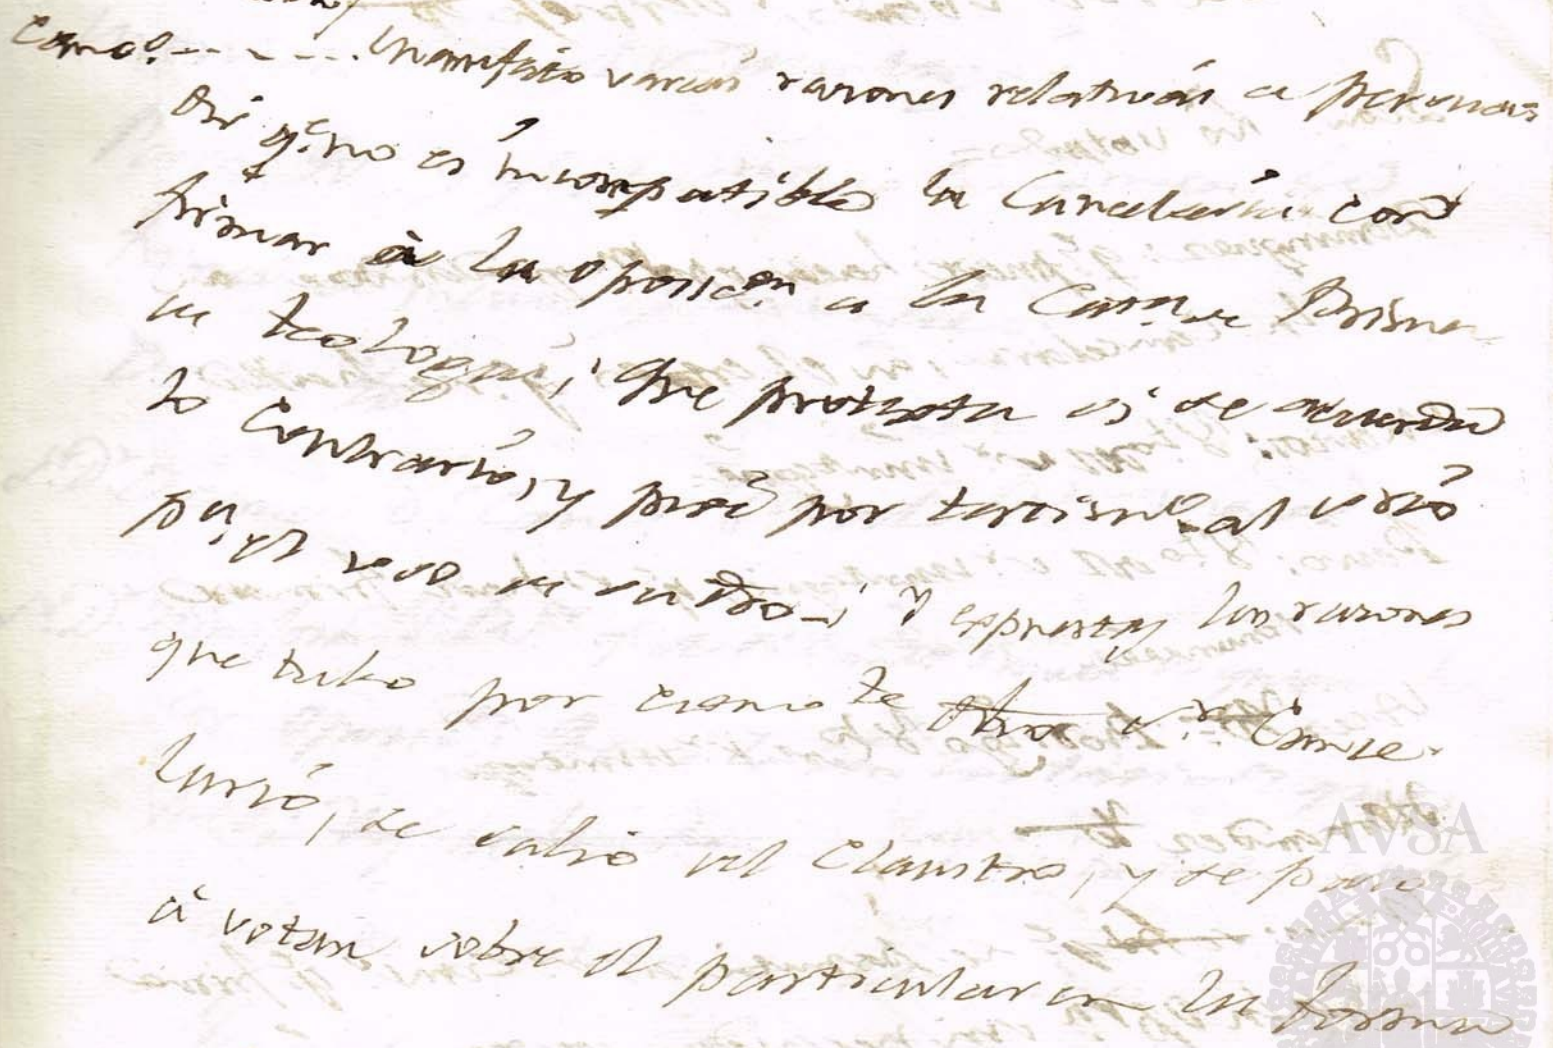 Canco. - - - - . Manifestó varias razones relativas a persua=
dir q.e no es incompatible la Cancelaria con
firmar à la oposicn. a la Cata. de Prima
de teologia; que protesta si se acuerda
lo Contrario, y pide por testimo. al vsrio
pa. el uso de su dro.; y expuestas las razones
que tubo por combte. otro sr. Cance-
lario, se salio del Claustro, y se paso
à votar sobre el particular en la forma
AVSA